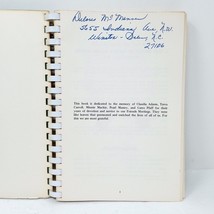 Delores McMann
3655 Indiana Ave N.W.
Winston-Salem, N.C.
27106
This book is dedicated to the memory of Claudia Adams, Treva
Carroll, Minnie Mosher, Pearl Motter, and Laura Pfaff for their
years of devotion and service to our French Meetings. They were
the leaven that permeated and enriched the flow of all of us. For
this we are most grateful.